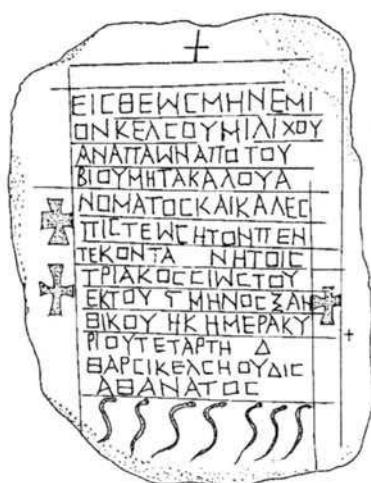 ΕΙϹΘΕѠϹΜΗΝΕΜΙ
ΟΝΚΕΛϹΟΥΜΙΛΙΧΟΥ
ΑΝΑΠΑѠΝΑΠΟΤΟΥ
ΒΙΟΥΜΗΤΑΚΑΛΟΥΑ
ΝΟΜΑΤΟϹΚΑΙΚΑΛΕϹ
ΠΙϹΤΕѠϹΗΤΟΝΠΕΝ
ΤΕΚΟΝΤΑ ΝΗΤΟΙϹ
ΤΡΙΑΚΟϹϹΙѠϹΤΟΥ
ΕΚΤΟΥ Ϛ ΜΗΝΟϹΞΑΝ
ΘΙΚΟΥ ΗΚ ΗΜΕΡΑΚΥ
ΡΙΟΥΤΕΤΑΡΤΗ Δ
ΘΑΡϹΙΚΕΛϹΗΟΥΔΙϹ
ΑΘΑΝΑΤΟϹ